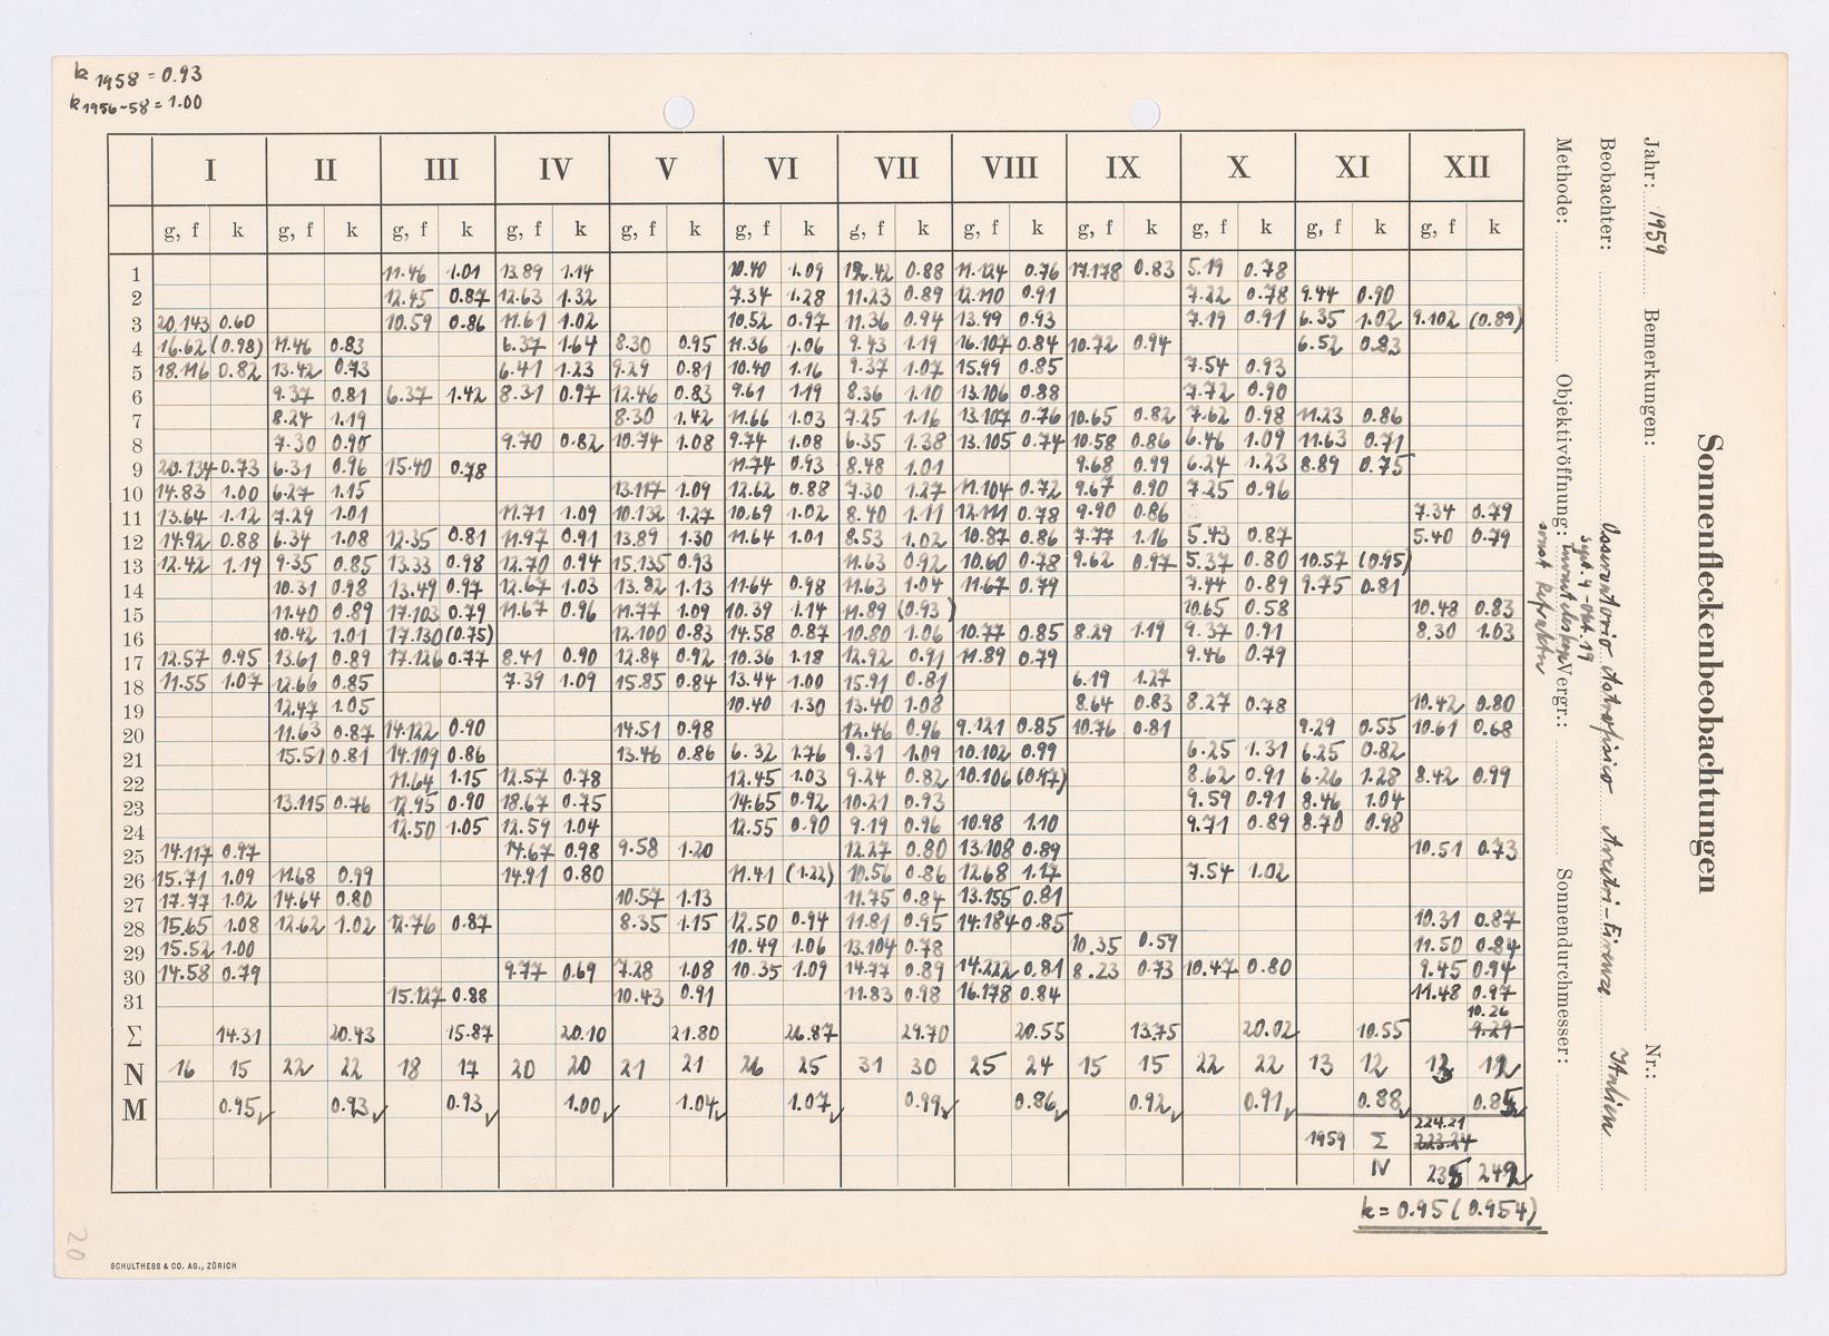 k 1958 = 0.93
k 1956-58 = 1.00
Sonnenfleckenbeobachtungen
Jahr: 1959 Bemerkungen: Nr.:
Beobachter: Osservatorio Astrofisico Arcetri-Firenze Italien
Sept. 4 - Okt. 19
sonst Refraktor
Methode: Objektivöffnung: Vergr.: Sonnendurchmesser:
I II III IV V VI VII VIII IX X XI XII
g, f k g, f k g, f k g, f k g, f k g, f k g, f k g, f k g, f k g, f k g, f k g, f k
1 11.46 1.01 13.89 1.14 10.40 1.09 12.42 0.88 11.124 0.76 17.178 0.83 5.19 0.78
2 12.45 0.87 12.63 1.32 7.34 1.28 11.23 0.89 12.110 0.91 7.22 0.78 9.44 0.90
3 20.143 0.60 10.59 0.86 11.61 1.02 10.52 0.97 11.36 0.94 13.99 0.93 7.19 0.91 6.35 1.02 9.102 (0.89)
4 16.62 (0.98) 11.46 0.83 6.37 1.64 8.30 0.95 11.36 1.06 9.43 1.19 16.107 0.84 10.72 0.94 6.52 0.83
5 18.116 0.82 13.42 0.73 6.41 1.23 9.29 0.81 10.40 1.16 9.37 1.07 15.99 0.85 7.54 0.93
6 9.37 0.81 6.37 1.42 8.31 0.97 12.46 0.83 9.61 1.19 8.36 1.10 13.106 0.88 7.72 0.90
7 8.24 1.19 8.30 1.42 11.66 1.03 7.25 1.16 13.107 0.76 10.65 0.82 7.62 0.98 11.23 0.86
8 7.30 0.90 9.70 0.82 10.74 1.08 9.74 1.08 6.35 1.38 13.105 0.74 10.58 0.86 6.46 1.09 11.63 0.71
9 20.134 0.73 6.31 0.96 15.40 0.78 11.74 0.93 8.48 1.01 9.68 0.99 6.24 1.23 8.89 0.75
10 14.83 1.00 6.27 1.15 13.117 1.09 12.62 0.88 7.30 1.27 11.104 0.72 9.67 0.90 7.25 0.96
11 13.64 1.12 7.29 1.01 11.71 1.09 10.132 1.27 10.69 1.02 8.40 1.11 12.111 0.78 9.90 0.86 7.34 0.79
12 14.92 0.88 6.34 1.08 12.35 0.81 11.97 0.91 13.89 1.30 11.64 1.01 8.53 1.02 10.87 0.86 7.77 1.16 5.43 0.87 5.40 0.79
13 12.42 1.19 9.35 0.85 13.33 0.98 12.70 0.94 15.135 0.93 11.63 0.92 10.60 0.78 9.62 0.97 5.37 0.80 10.57 (0.95)
14 10.31 0.98 13.49 0.97 12.67 1.03 13.82 1.13 11.64 0.98 11.63 1.04 11.67 0.79 7.44 0.89 9.75 0.81
15 11.40 0.89 17.103 0.79 11.67 0.96 11.77 1.09 10.39 1.14 11.89 (0.93) 10.65 0.58 10.48 0.83
16 10.42 1.01 17.130 (0.75) 12.100 0.83 14.58 0.87 10.80 1.06 10.77 0.85 8.29 1.19 9.37 0.91 8.30 1.03
17 12.57 0.95 13.61 0.89 17.126 0.77 8.41 0.90 12.84 0.92 10.36 1.18 12.92 0.91 11.89 0.79 9.46 0.79
18 11.55 1.07 12.66 0.85 7.39 1.09 15.85 0.84 13.44 1.00 15.91 0.81 6.19 1.27
19 12.47 1.05 10.40 1.30 13.40 1.08 8.64 0.83 8.27 0.78 10.42 0.80
20 11.63 0.87 14.122 0.90 14.51 0.98 12.46 0.96 9.121 0.85 10.76 0.81 9.29 0.55 10.61 0.68
21 15.51 0.81 14.109 0.86 13.46 0.86 6.32 1.76 9.31 1.09 10.102 0.99 6.25 1.31 6.25 0.82
22 11.64 1.15 12.57 0.78 12.45 1.03 9.24 0.82 10.106 (0.97) 8.62 0.91 6.26 1.28 8.42 0.99
23 13.115 0.76 12.95 0.90 18.67 0.75 14.65 0.92 10.21 0.93 9.59 0.91 8.46 1.04
24 12.50 1.05 12.59 1.04 12.55 0.90 9.19 0.96 10.98 1.10 9.71 0.89 8.70 0.98
25 14.117 0.97 14.67 0.98 9.58 1.20 12.27 0.80 13.108 0.89 10.51 0.73
26 15.71 1.09 11.68 0.99 14.91 0.80 11.41 (1.22) 10.56 0.86 12.68 1.17 7.54 1.02
27 17.77 1.02 14.64 0.80 10.57 1.13 11.75 0.84 13.155 0.81
28 15.65 1.08 12.62 1.02 12.76 0.87 8.35 1.15 12.50 0.94 11.81 0.95 14.184 0.85 10.31 0.87
29 15.52 1.00 10.49 1.06 13.104 0.78 10.35 0.59 11.50 0.84
30 14.58 0.79 9.77 0.69 7.28 1.08 10.35 1.09 14.77 0.89 14.222 0.81 8.23 0.73 10.47 0.80 9.45 0.94
31 15.127 0.88 10.43 0.91 11.83 0.98 16.178 0.84 11.48 0.97
10.26
Σ 14.31 20.43 15.87 20.10 21.80 26.87 29.70 20.55 13.75 20.02 10.55 9.29
N 16 15 22 22 18 17 20 20 21 21 26 25 31 30 25 24 15 15 22 22 13 12 13 12
M 0.95✓ 0.93✓ 0.93✓ 1.00✓ 1.04✓ 1.07✓ 0.99✓ 0.86✓ 0.92✓ 0.91✓ 0.88✓ 0.85✓
224.21
1959 Σ 223.24
N 235 242
k = 0.95 (0.954)
20
SCHULTHESS & CO. AG., ZÜRICH